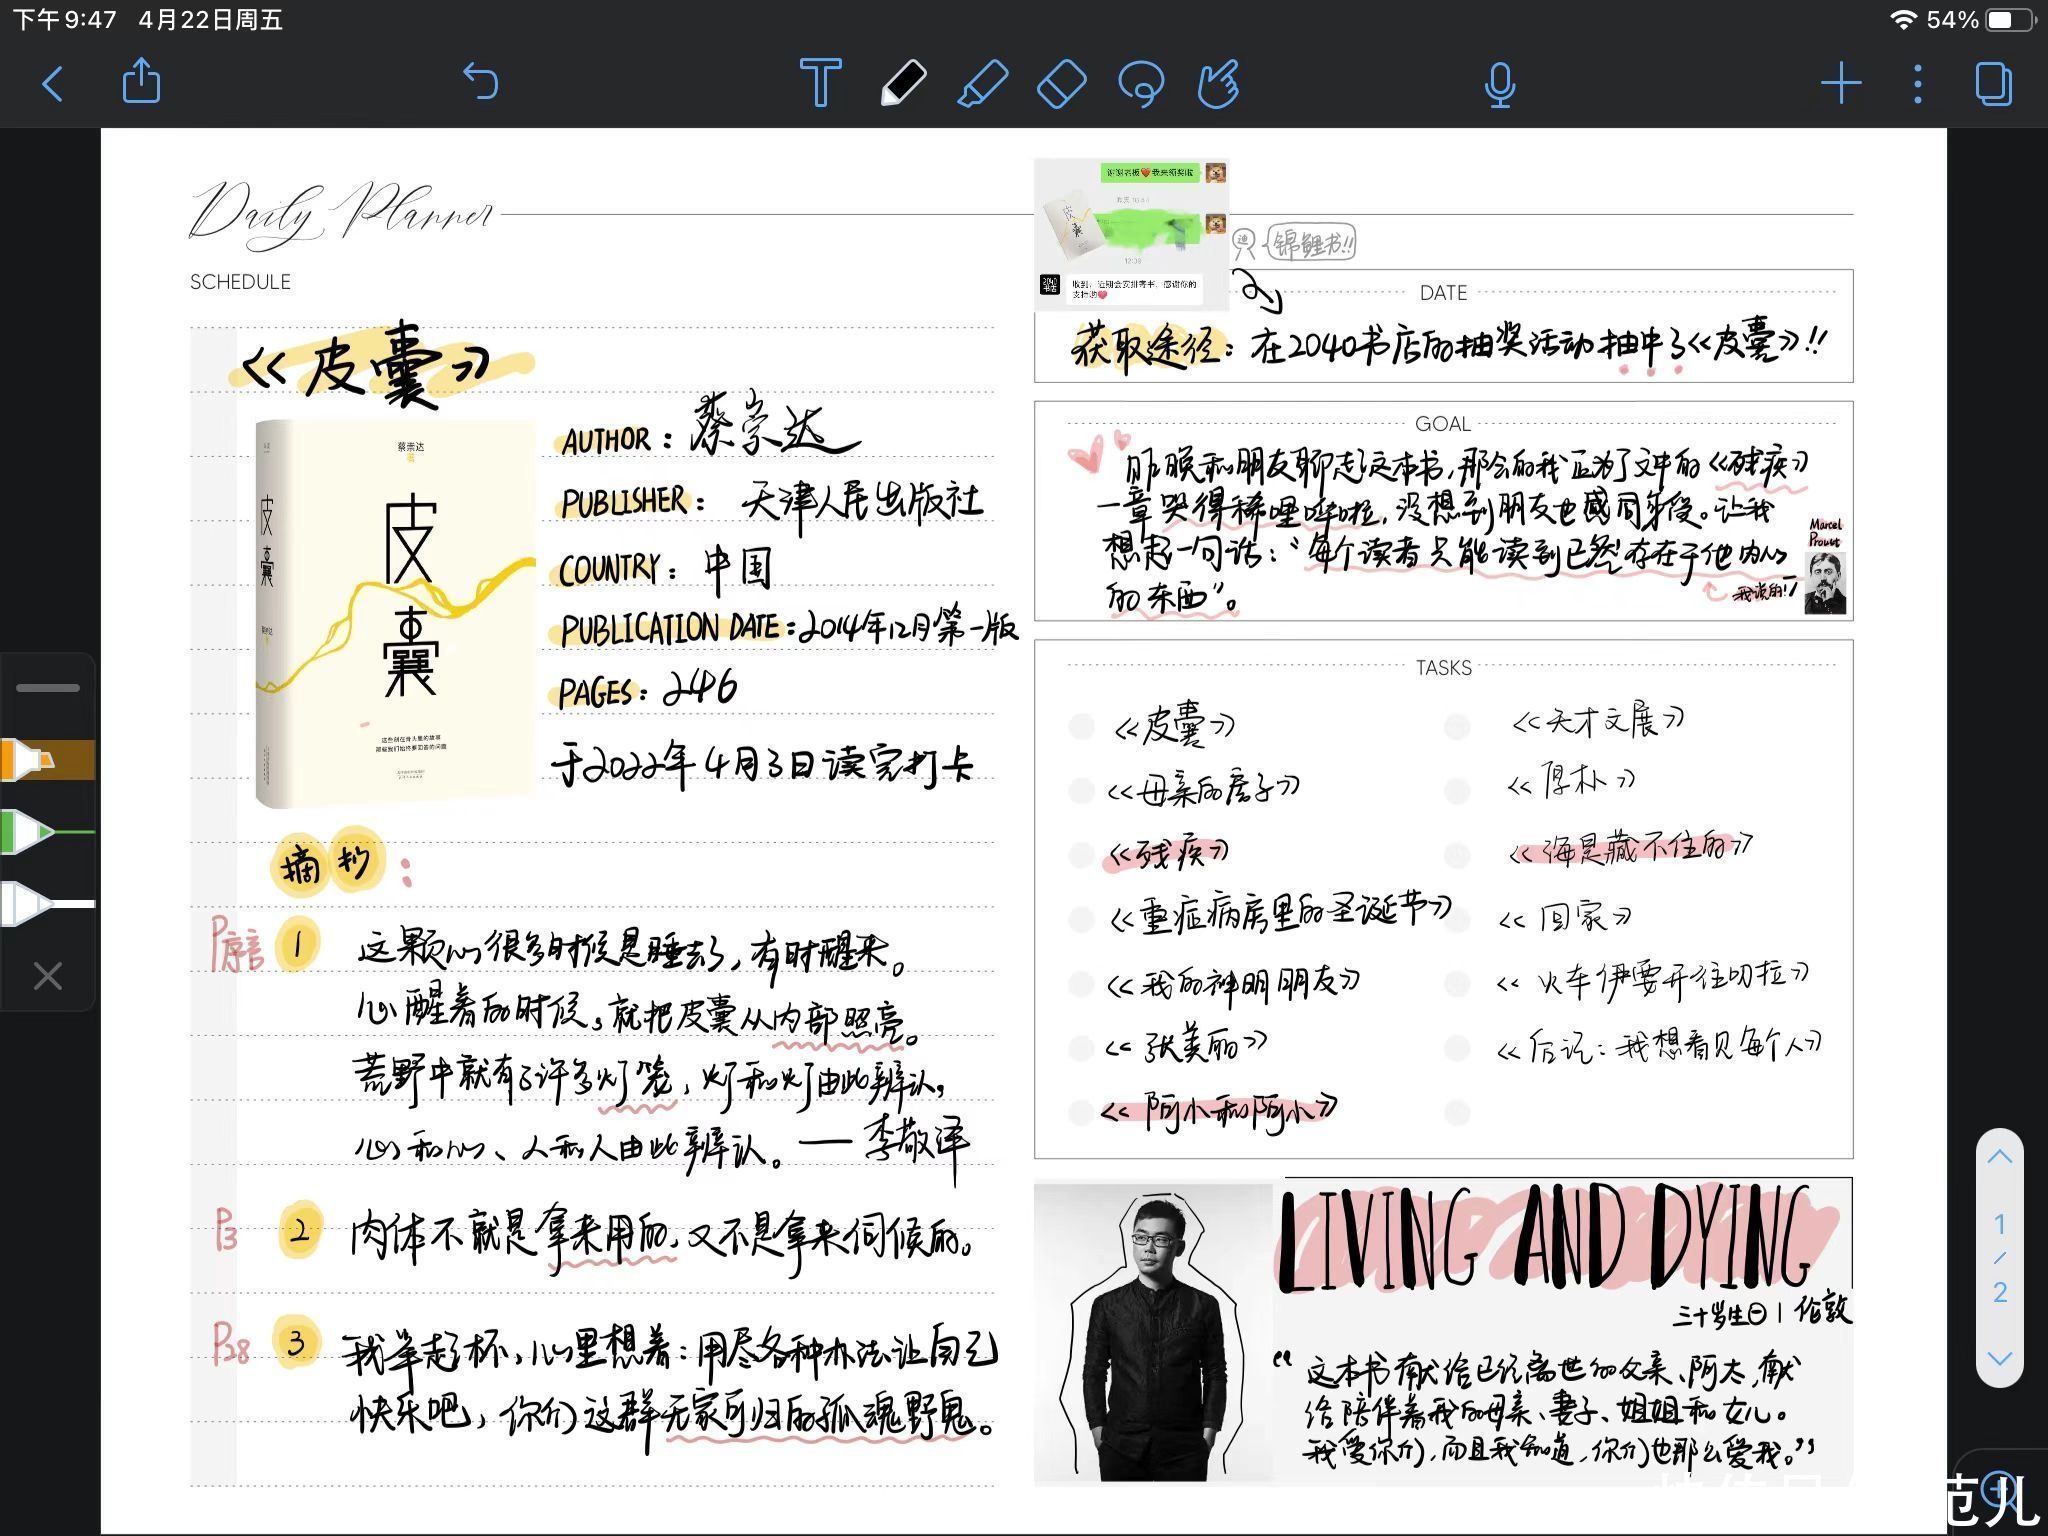 下午9:47 4月22日周五
54%
Daily Planner
SCHEDULE
《皮囊》
蔡崇达
著
皮囊
皮囊
蔡崇达
这些刻在骨头里的故事
那些我们始终要回答的问题
AUTHOR：蔡崇达
PUBLISHER：天津人民出版社
COUNTRY：中国
PUBLICATION DATE：2014年12月第一版
PAGES：246
于2022年4月3日读完打卡
摘抄：
P序言 1 这颗心很多时候是睡去了，有时醒来。
心醒着的时候，就把皮囊从内部照亮。
荒野中就有了许多灯笼，灯和灯由此辨认，
心和心、人和人由此辨认。——李敬泽
P3 2 肉体不就是拿来用的，又不是拿来伺候的。
P28 3 我拿起杯，心里想着：用尽各种办法让自己
快乐吧，你们这群无家可归的孤魂野鬼。
谢谢老板❤我来领奖啦
皮囊
12:09
2040书店
收到，近期会安排寄书，感谢你的
支持哟❤
锦鲤书!!
DATE
获取途径：在2040书店的抽奖活动抽中了《皮囊》!!
GOAL
昨晚和朋友聊起这本书，那会的我正为了文中的《残疾》
一章哭得稀哩哗啦，没想到朋友也感同身受。让我
想起一句话：“每个读者只能读到已然存在于他内心
的东西”。
Marcel
Proust
我说的!
TASKS
《皮囊》
《母亲的房子》
《残疾》
《重症病房里的圣诞节》
《我的神明朋友》
《张美丽》
《阿小和阿小》
《天才文展》
《厚朴》
《海是藏不住的》
《回家》
《火车伊要开往叨拉》
《后记：我想看见每个人》
LIVING AND DYING
三十岁生日 | 伦敦
“这本书献给已经离世的父亲、阿太，献
给陪伴着我的母亲、妻子、姐姐和女儿。
我爱你们，而且我知道，你们也那么爱我。”
1
/
2
范儿